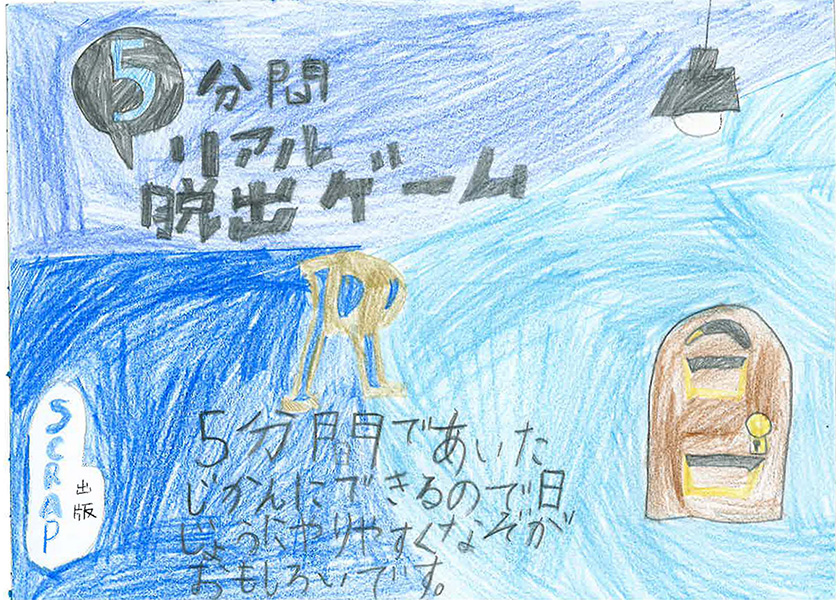 5分間
リアル
脱出ゲーム
5分間であいた
じかんにできるので日
じょうにやりやすくなぞが
おもしろいです。
SCRAP
出版